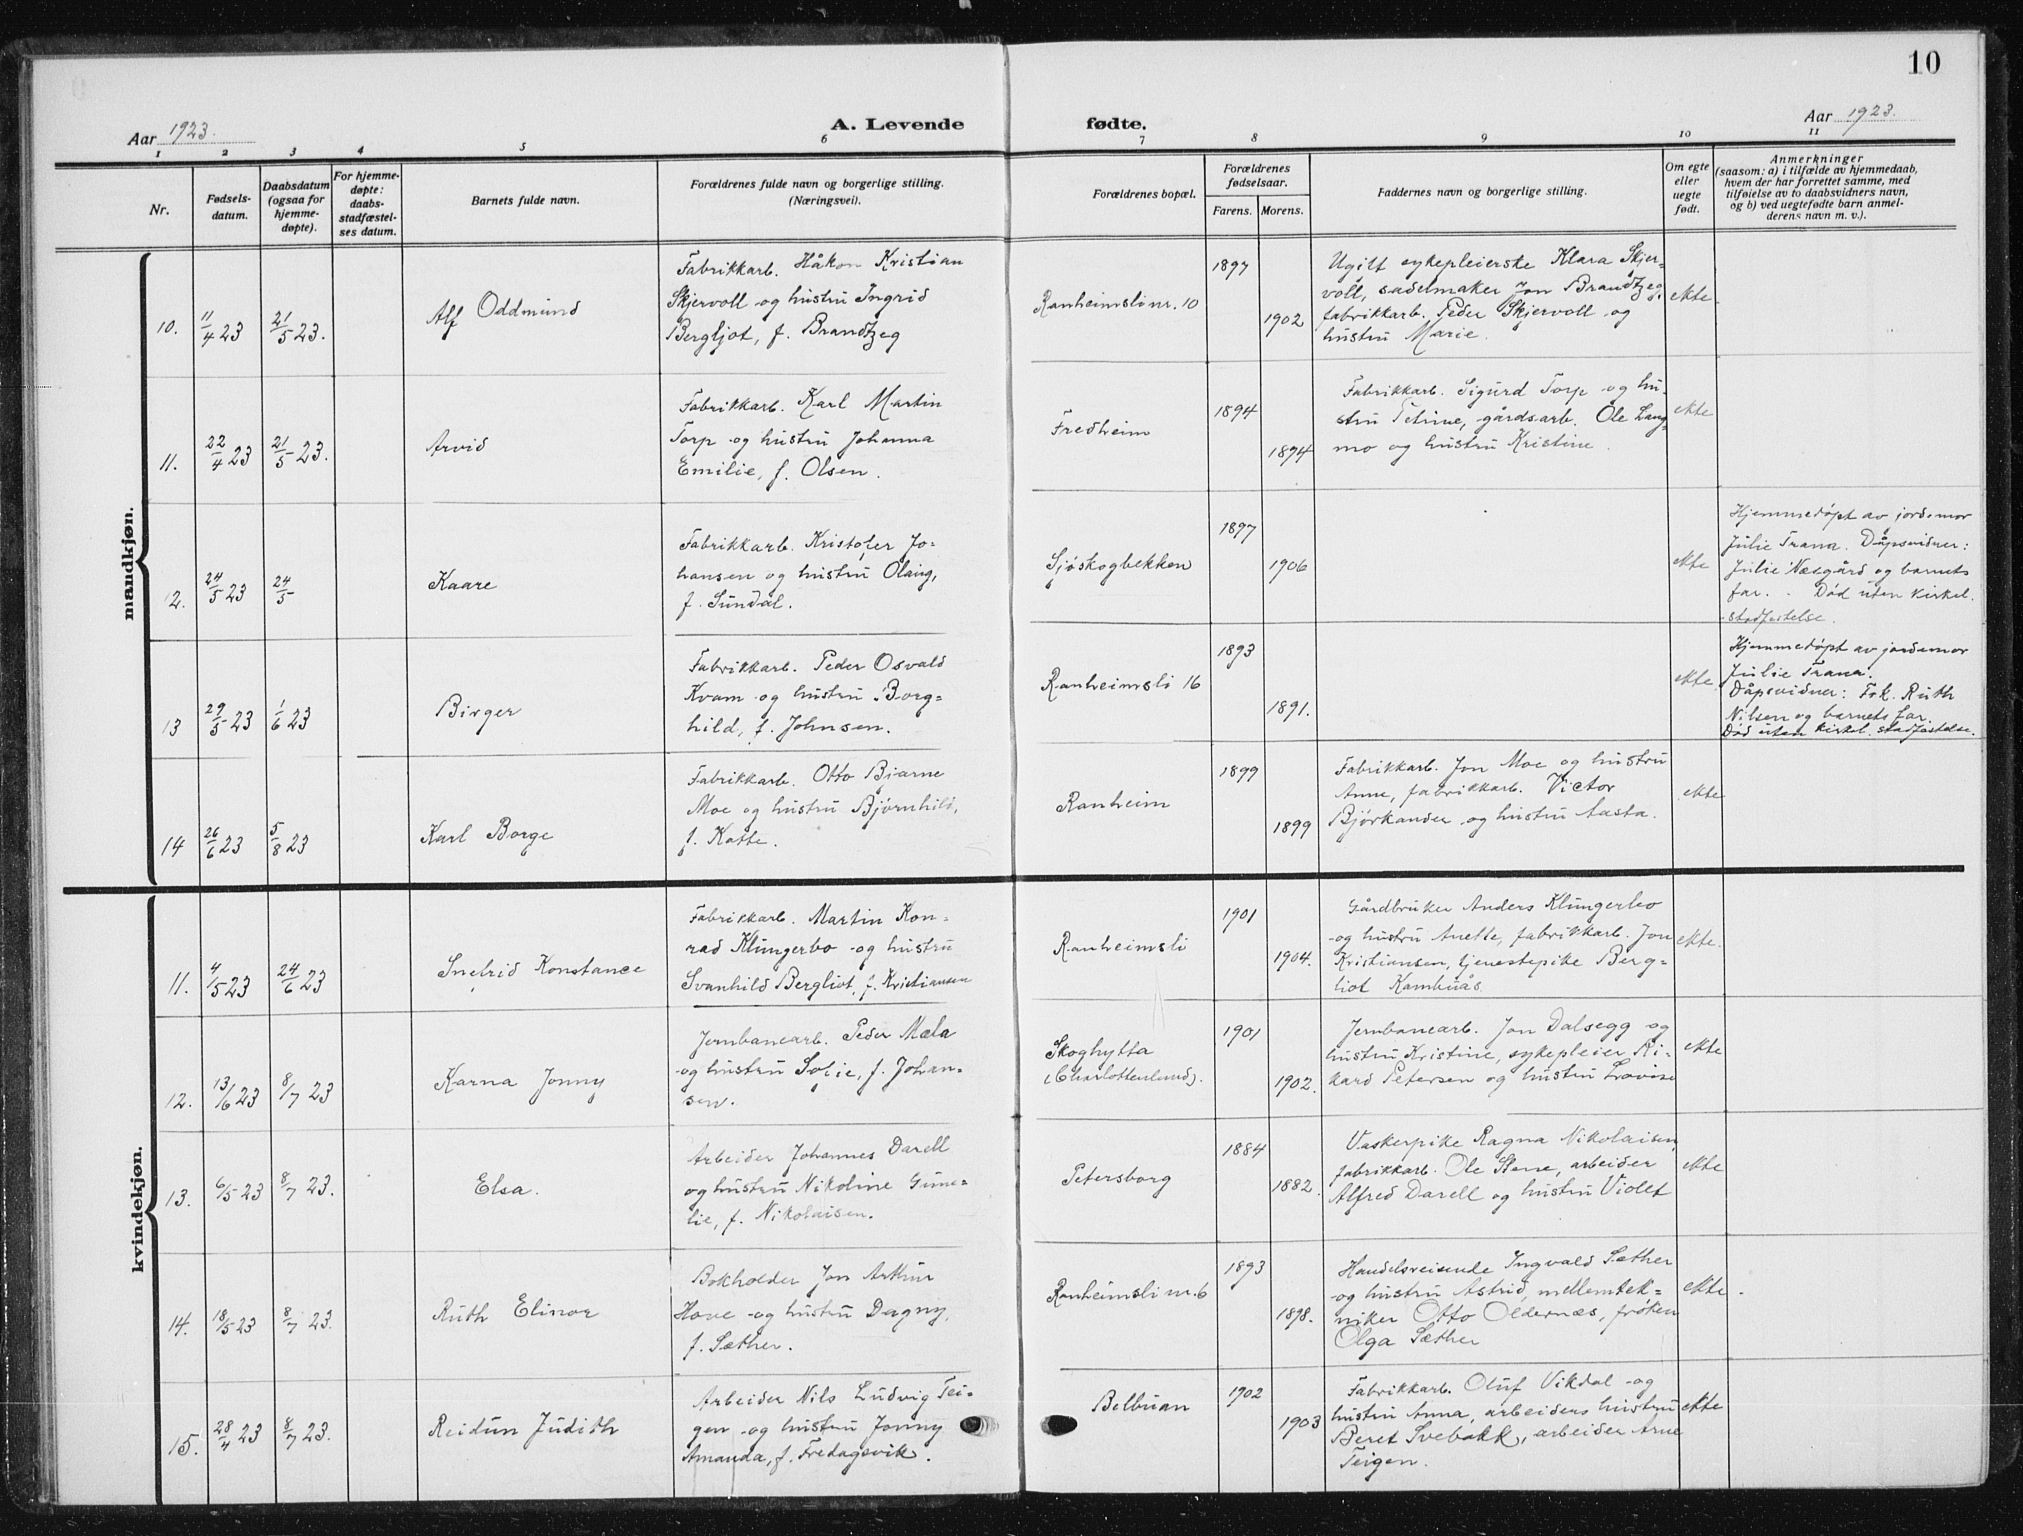 10
Aar 1923.
A. Levende
fødte.
Aar 1923.
1 2 3 4 5 6 7 8 9 10 11
Nr.
Fødsels-
datum.
Daabsdatum
(ogsaa for
hjemme-
døpte).
For hjemme-
døpte:
daabs-
stadfæstel-
ses datum.
Barnets fulde navn.
Forældrenes fulde navn og borgerlige stilling.
(Næringsvei).
Forældrenes bopæl.
Forældrenes
fødselsaar.
Farens. Morens.
Faddernes navn og borgerlige stilling.
Om egte
eller
uegte
født.
Anmerkninger
(saasom: a) i tilfælde av hjemmedaab,
hvem der har forrettet samme, med
tilføielse av to daabsvidners navn,
og b) ved uegtefødte barn anmel-
derens navn m. v.).
mandkjøn.
10. 11/4 23 21/5 23. Alf Oddmund
Fabrikkarb. Håkon Kristian
Skjervoll og hustru Ingrid
Bergljot, f. Brandtzeg
Ranheimsli nr. 10
1897
1902
Ugift sykepleierske Klara Skjer-
voll, sadelmaker Jon Brandtzeg,
fabrikkarb. Peder Skjervoll og
hustru Marie.
ekte
11. 22/4 23 21/5 23. Arvid
Fabrikkarb. Karl Martin
Torp og hustru Johanna
Emilie, f. Olsen.
Fredheim
1894
1894
Fabrikkarb. Sigurd Torp og hu-
stru Petrine, gårdsarb. Ole Lang-
mo og hustru Kristine.
ekte
12. 24/5 23 24/5 Kaare
Fabrikkarb. Kristofer Jo-
hansen og hustru Olaug,
f. Sundal.
Sjøskogbekken
1897
1906
ekte
Hjemmedøpt av jordemor
Julie Trana. Dåpsvidner:
Julie Næsgård og barnets
far. Død uten kirkel.
stadfestelse.
13 29/5 23 1/6 23 Birger
Fabrikkarb. Peder Osvald
Kvam og hustru Borg-
hild, f. Johnsen.
Ranheimsli 16
1893
1891.
ekte
Hjemmedøpt av jordemor
Julie Trana.
Dåpsvidner: Frk. Ruth
Nilsen og barnets far.
Død uten kirkel. stadfestelse.
14 26/6 23 5/8 23 Karl Borge
Fabrikkarb. Otto Bjarne
Moe og hustru Bjørnhild,
f. Kotte.
Ranheim
1899
1899
Fabrikkarb. Jon Moe og hustru
Anne, fabrikkarb. Victor
Bjørkander og hustru Aasta.
ekte
kvindekjøn.
11. 4/5 23 24/6 23 Snefrid Konstance
Fabrikkarb. Martin Kon-
rad Klungerbo og hustru
Svanhild Bergliot, f. Kristiansen
Ranheimsli
1901
1904.
Gårdbruker Anders Klungerbo
og hustru Anette, fabrikkarb. Jon
Kristiansen, tjenestepike Berg-
liot Kambuås
ekte.
12. 13/6 23 8/7 23 Karna Jonny
Jernbanearb. Peder Mæla
og hustru Sofie, f. Johan-
sen.
Skoghytta
(Charlottenlund).
1901
1902.
Jernbanearb. Jon Dalsegg og
hustru Kristine, sykepleier Ri-
kard Petersen og hustru Lovise
ekte
13. 6/5 23 8/7 23. Elsa.
Arbeider Johannes Darell
og hustru Nikoline Gune-
lie, f. Nikolaisen.
Petersborg
1884
1882.
Vaskerpike Ragna Nikolaisen,
fabrikkarb. Ole Stene, arbeider
Alfred Darell og hustru Violet
ekte
14. 18/5 23 8/7 23. Ruth Elinor
Bokholder Jon Arthur
Hove og hustru Dagny,
f. Sæther.
Ranheimsli nr. 6
1893
1898.
Handelsreisende Ingvald Sæther
og hustru Astrid, mellemtek-
niker Otto Oldernæs, frøken
Olga Sæther
ekte.
15. 28/4 23 8/7 23. Reidun Judith
Arbeider Nils Ludvig Tei-
gen og hustru Jonny
Amanda, f. Fredagsvik.
Belbuan
1902
1903
Fabrikkarb. Oluf Vikdal og
hustru Anna, arbeiders hustru
Beret Svebakk, arbeider Arne
Teigen.
ekte